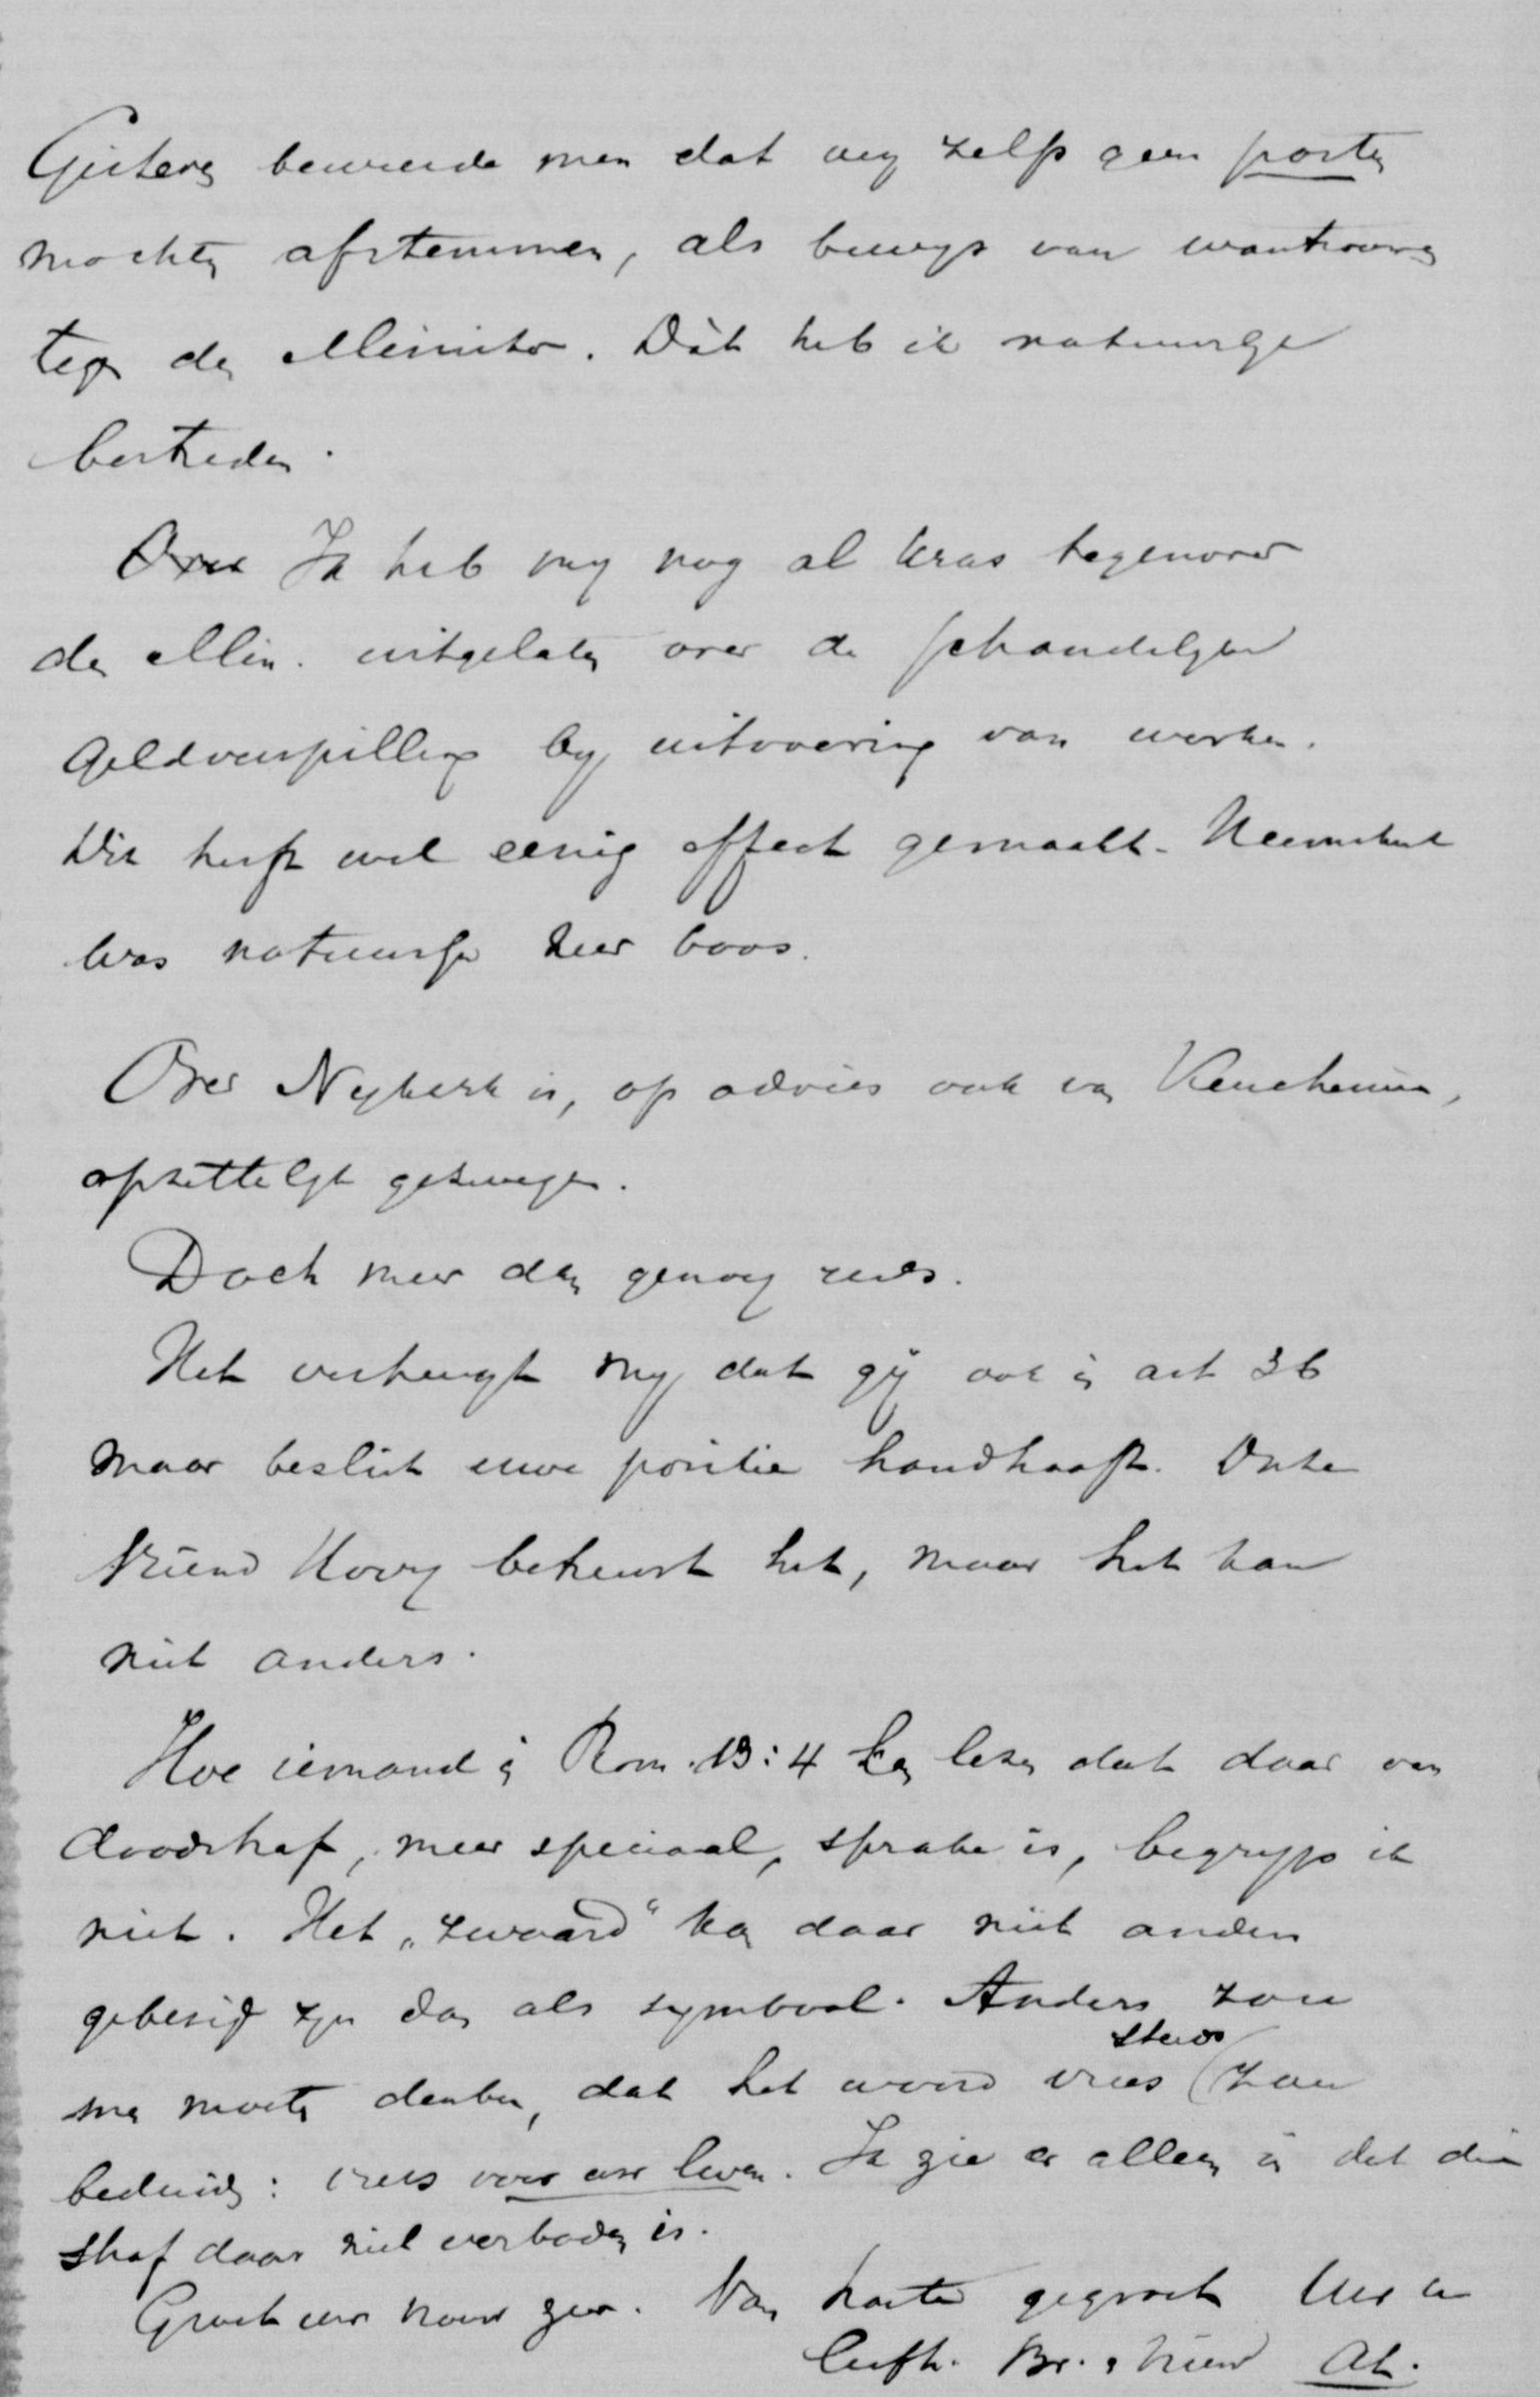 Gisteren beweerde men dat wij zelfs geen posten
mochten afstemmen, als bewijs van wantrouwen
tegen den Minister. Dàt heb ik natuurlijk
bestreden.
Over Ik heb mij nog al kras tegenover
den Min. uitgelaten over de schandelijke
geldverspilling bij uitvoering van werken.
Dit heeft wel eenig effect gemaakt. Heemskerk
was natuurlijk zeer boos.
Over Nijkerk is, op advies ook van Keuchenius,
opzettelijk gezwegen.
Doch meer dan genoeg reeds.
Het verheugt mij dat gij ook in art 36
maar beslist uwe positie handhaaft. Onze
vriend Hovy betreurt het, maar het kan
niet anders.
Hoe iemand in Rom. 13:4 kan lezen dat daar van
doodstraf, meer speciaal, sprake is, begrijp ik
niet. Het „zwaard" kan daar niet anders
gebezigd zijn dan als symbool. Anders zou
men moeten denken, dat het woord vrees steeds zou
beduiden: vrees voor uw leven. Ik zie er alleen in dat die
straf daar niet verboden is.
Groet uw vrouw zeer. Van harte gegroet Uw
liefh. Br. & vriend